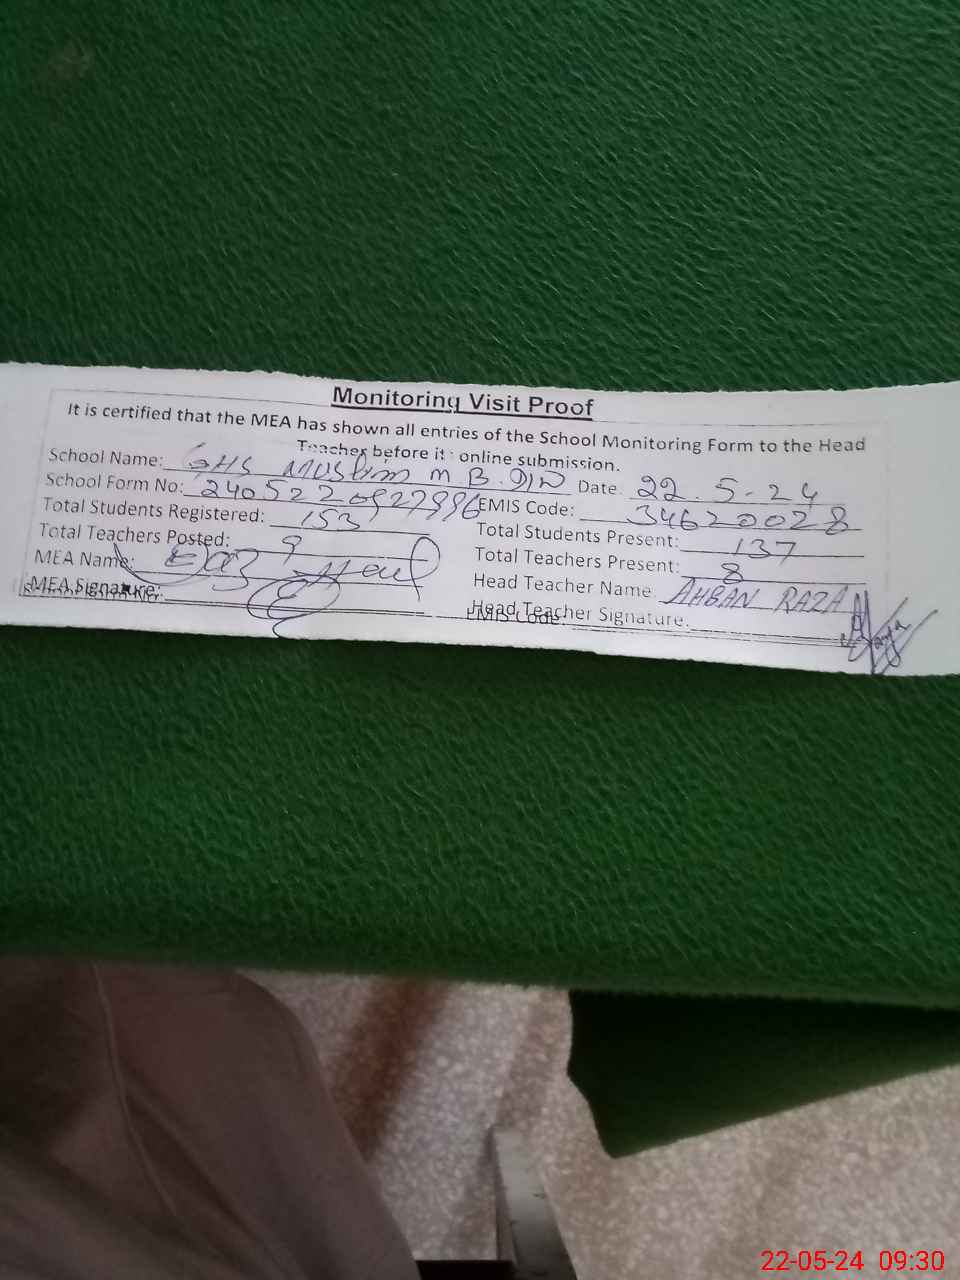 Monitoring Visit Proof
It is certified that the MEA has shown all entries of the School Monitoring Form to the Head
Teacher before it online submission.
School Name: GHS Muslim M B. Date 22.5-24
School Form No: 2405220927996 EMIS Code: 34620028
Total Students Registered: 153 Total Students Present: 137
Total Teachers Posted: 9 Total Teachers Present: 8
MEA Name: Head Teacher Name AHBAN RAZA
MEA Signature: Head Teacher Signature.
EMIS Code:
22-05-24 09:30